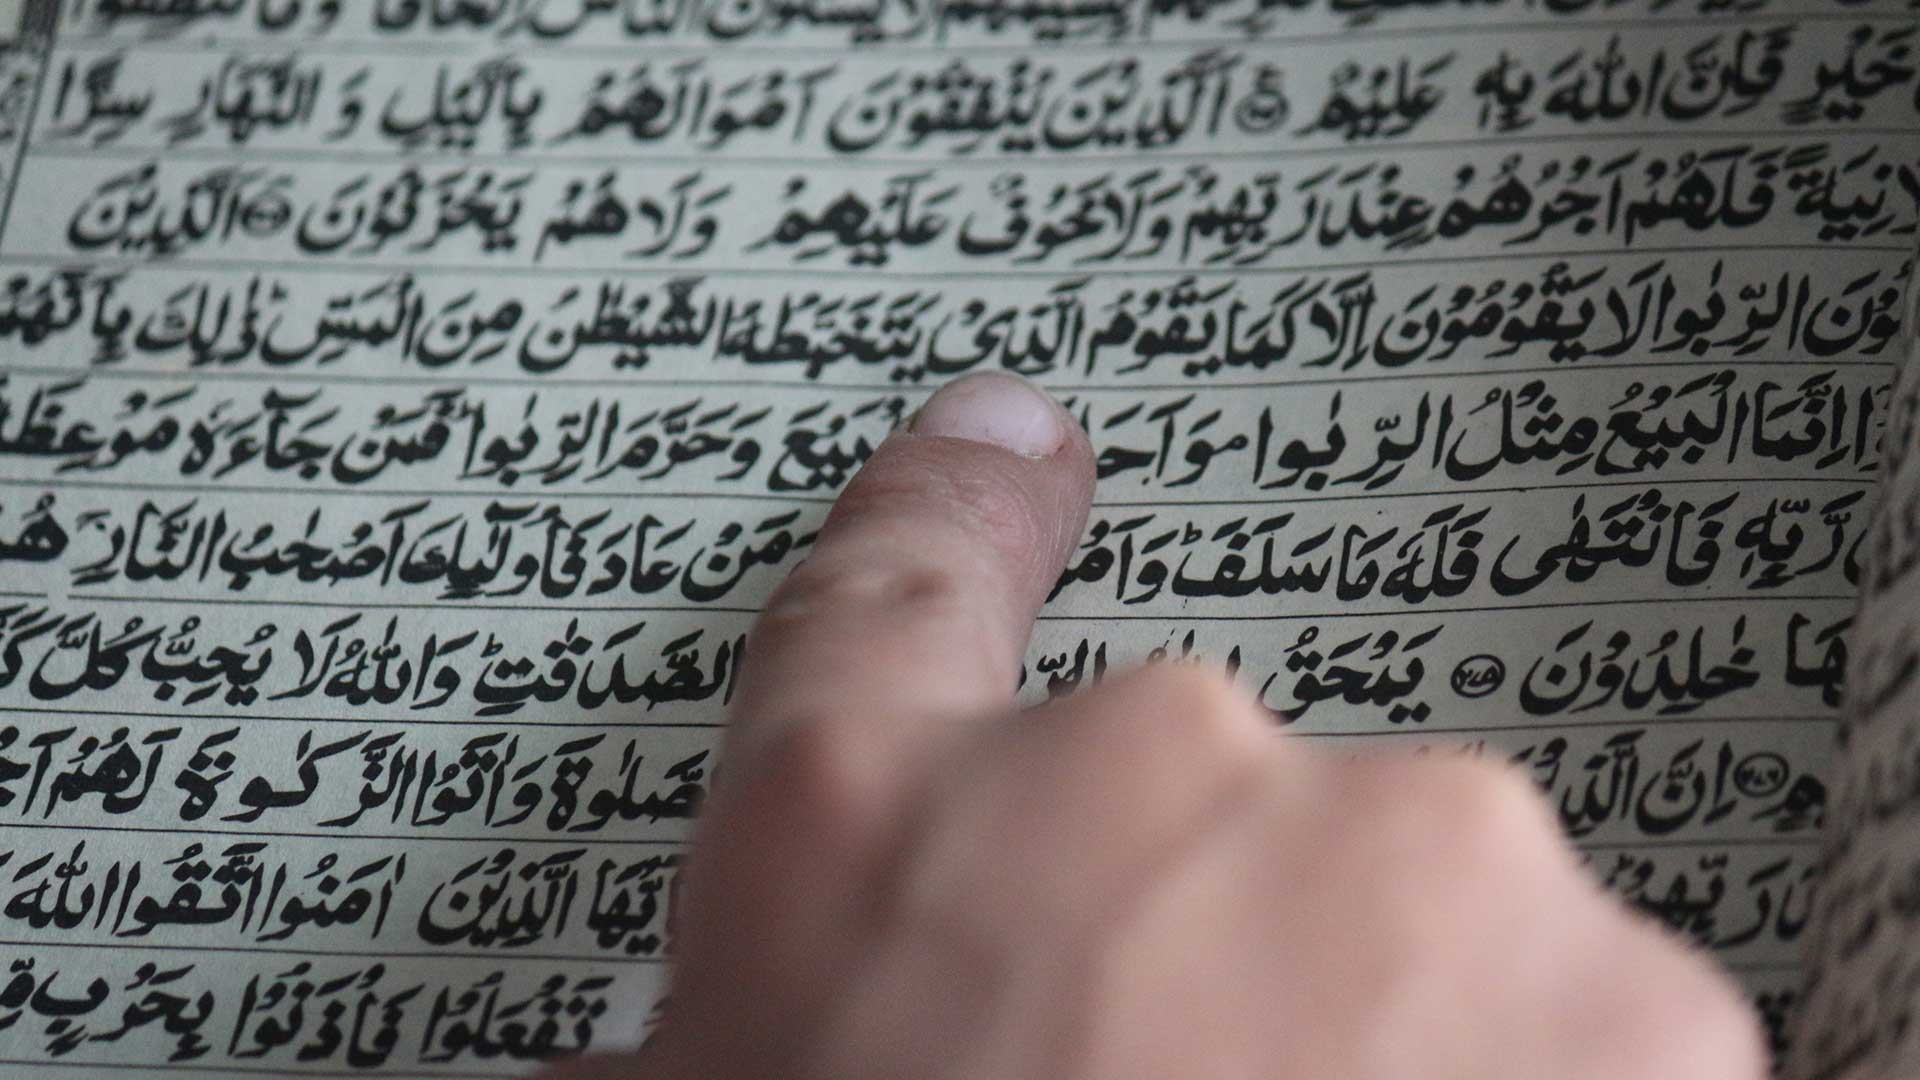 خَيْرٍ فَاِنَّ اللّٰهَ بِهٖ عَلِيْمٌ ۝۲۷۳ اَلَّذِيْنَ يُنْفِقُوْنَ اَمْوَالَهُمْ بِالَّيْلِ وَ النَّهَارِ سِرًّا
فَلَهُمْ اَجْرُهُمْ عِنْدَ رَبِّهِمْ وَلَا خَوْفٌ عَلَيْهِمْ وَلَا هُمْ يَحْزَنُوْنَ ۝ اَلَّذِيْنَ
الرِّبٰوا لَا يَقُوْمُوْنَ اِلَّا كَمَا يَقُوْمُ الَّذِيْ يَتَخَبَّطُهُ الشَّيْطٰنُ مِنَ الْمَسِّ ذٰلِكَ بِاَنَّهُمْ
اِنَّمَا الْبَيْعُ مِثْلُ الرِّبٰوا ۘ وَحَرَّمَ الرِّبٰوا فَمَنْ جَآءَهٗ
رَّبِّهٖ فَانْتَهٰى فَلَهٗ مَا سَلَفَ ؕ عَادَ فَاُولٰٓئِكَ اَصْحٰبُ النَّارِ
خٰلِدُوْنَ ۝۲۷۵ يَمْحَقُ الصَّدَقٰتِ ؕ وَاللّٰهُ لَا يُحِبُّ كُلَّ
۝۲۷۶ اِنَّ وَاٰتَوُا الزَّكٰوةَ لَهُمْ
رَبِّهِمْ الَّذِيْنَ اٰمَنُوا اتَّقُوا اللّٰهَ
تَفْعَلُوْا فَاْذَنُوْا بِحَرْبٍ